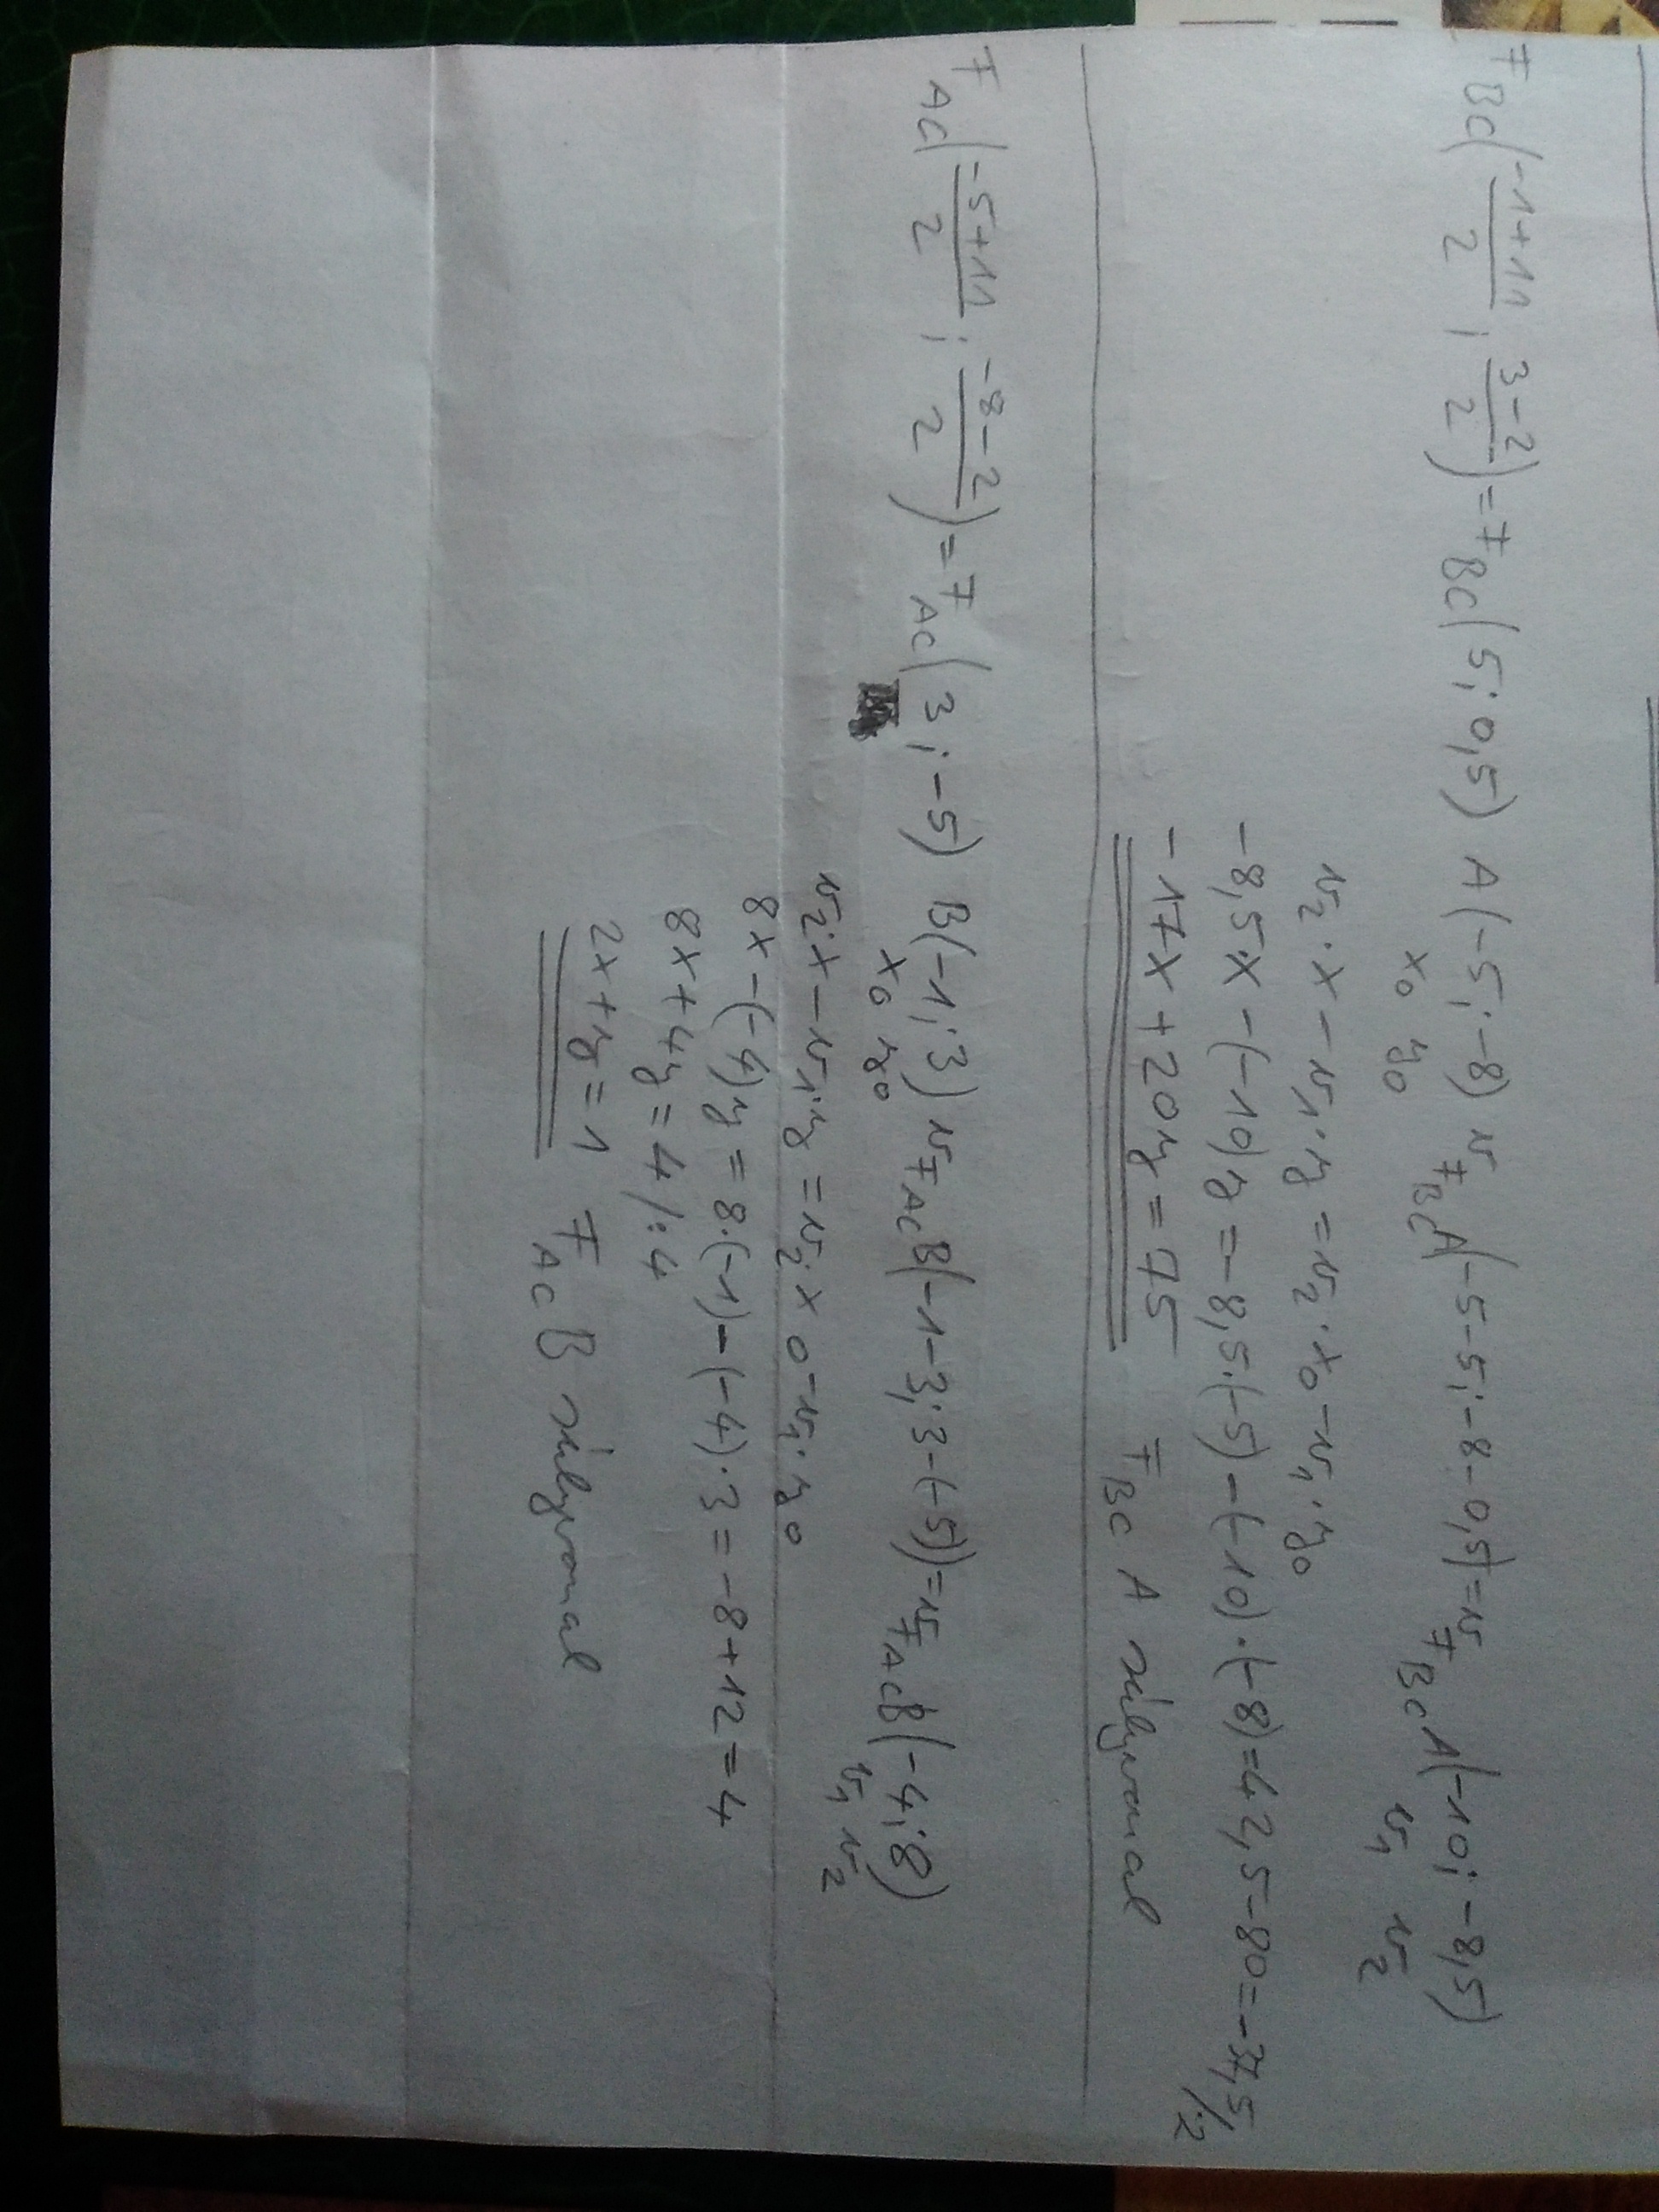 F BC(-1+11/2 ; 3-2/2) = F BC(5; 0,5) A(-5; -8) v F BC A(-5-5; -8-0,5) = v F BC A(-10; -8,5)
x0 y0 v1 v2
v2·x - v1·y = v2·x0 - v1·y0
-8,5x - (-10)y = -8,5·(-5) - (-10)·(-8) = 42,5 - 80 = -37,5 /·2
-17x + 20y = 75 F BC A súlyvonal
F AC(-5+11/2 ; -8-2/2) = F AC(3; -5) B(-1; 3) v F AC B(-1-3; 3-(-5)) = v F AC B(-4; 8)
x0 y0 v1 v2
v2·x - v1·y = v2·x0 - v1·y0
8x - (-4)y = 8·(-1) - (-4)·3 = -8+12 = 4
8x + 4y = 4 /:4
2x + y = 1 F AC B súlyvonal